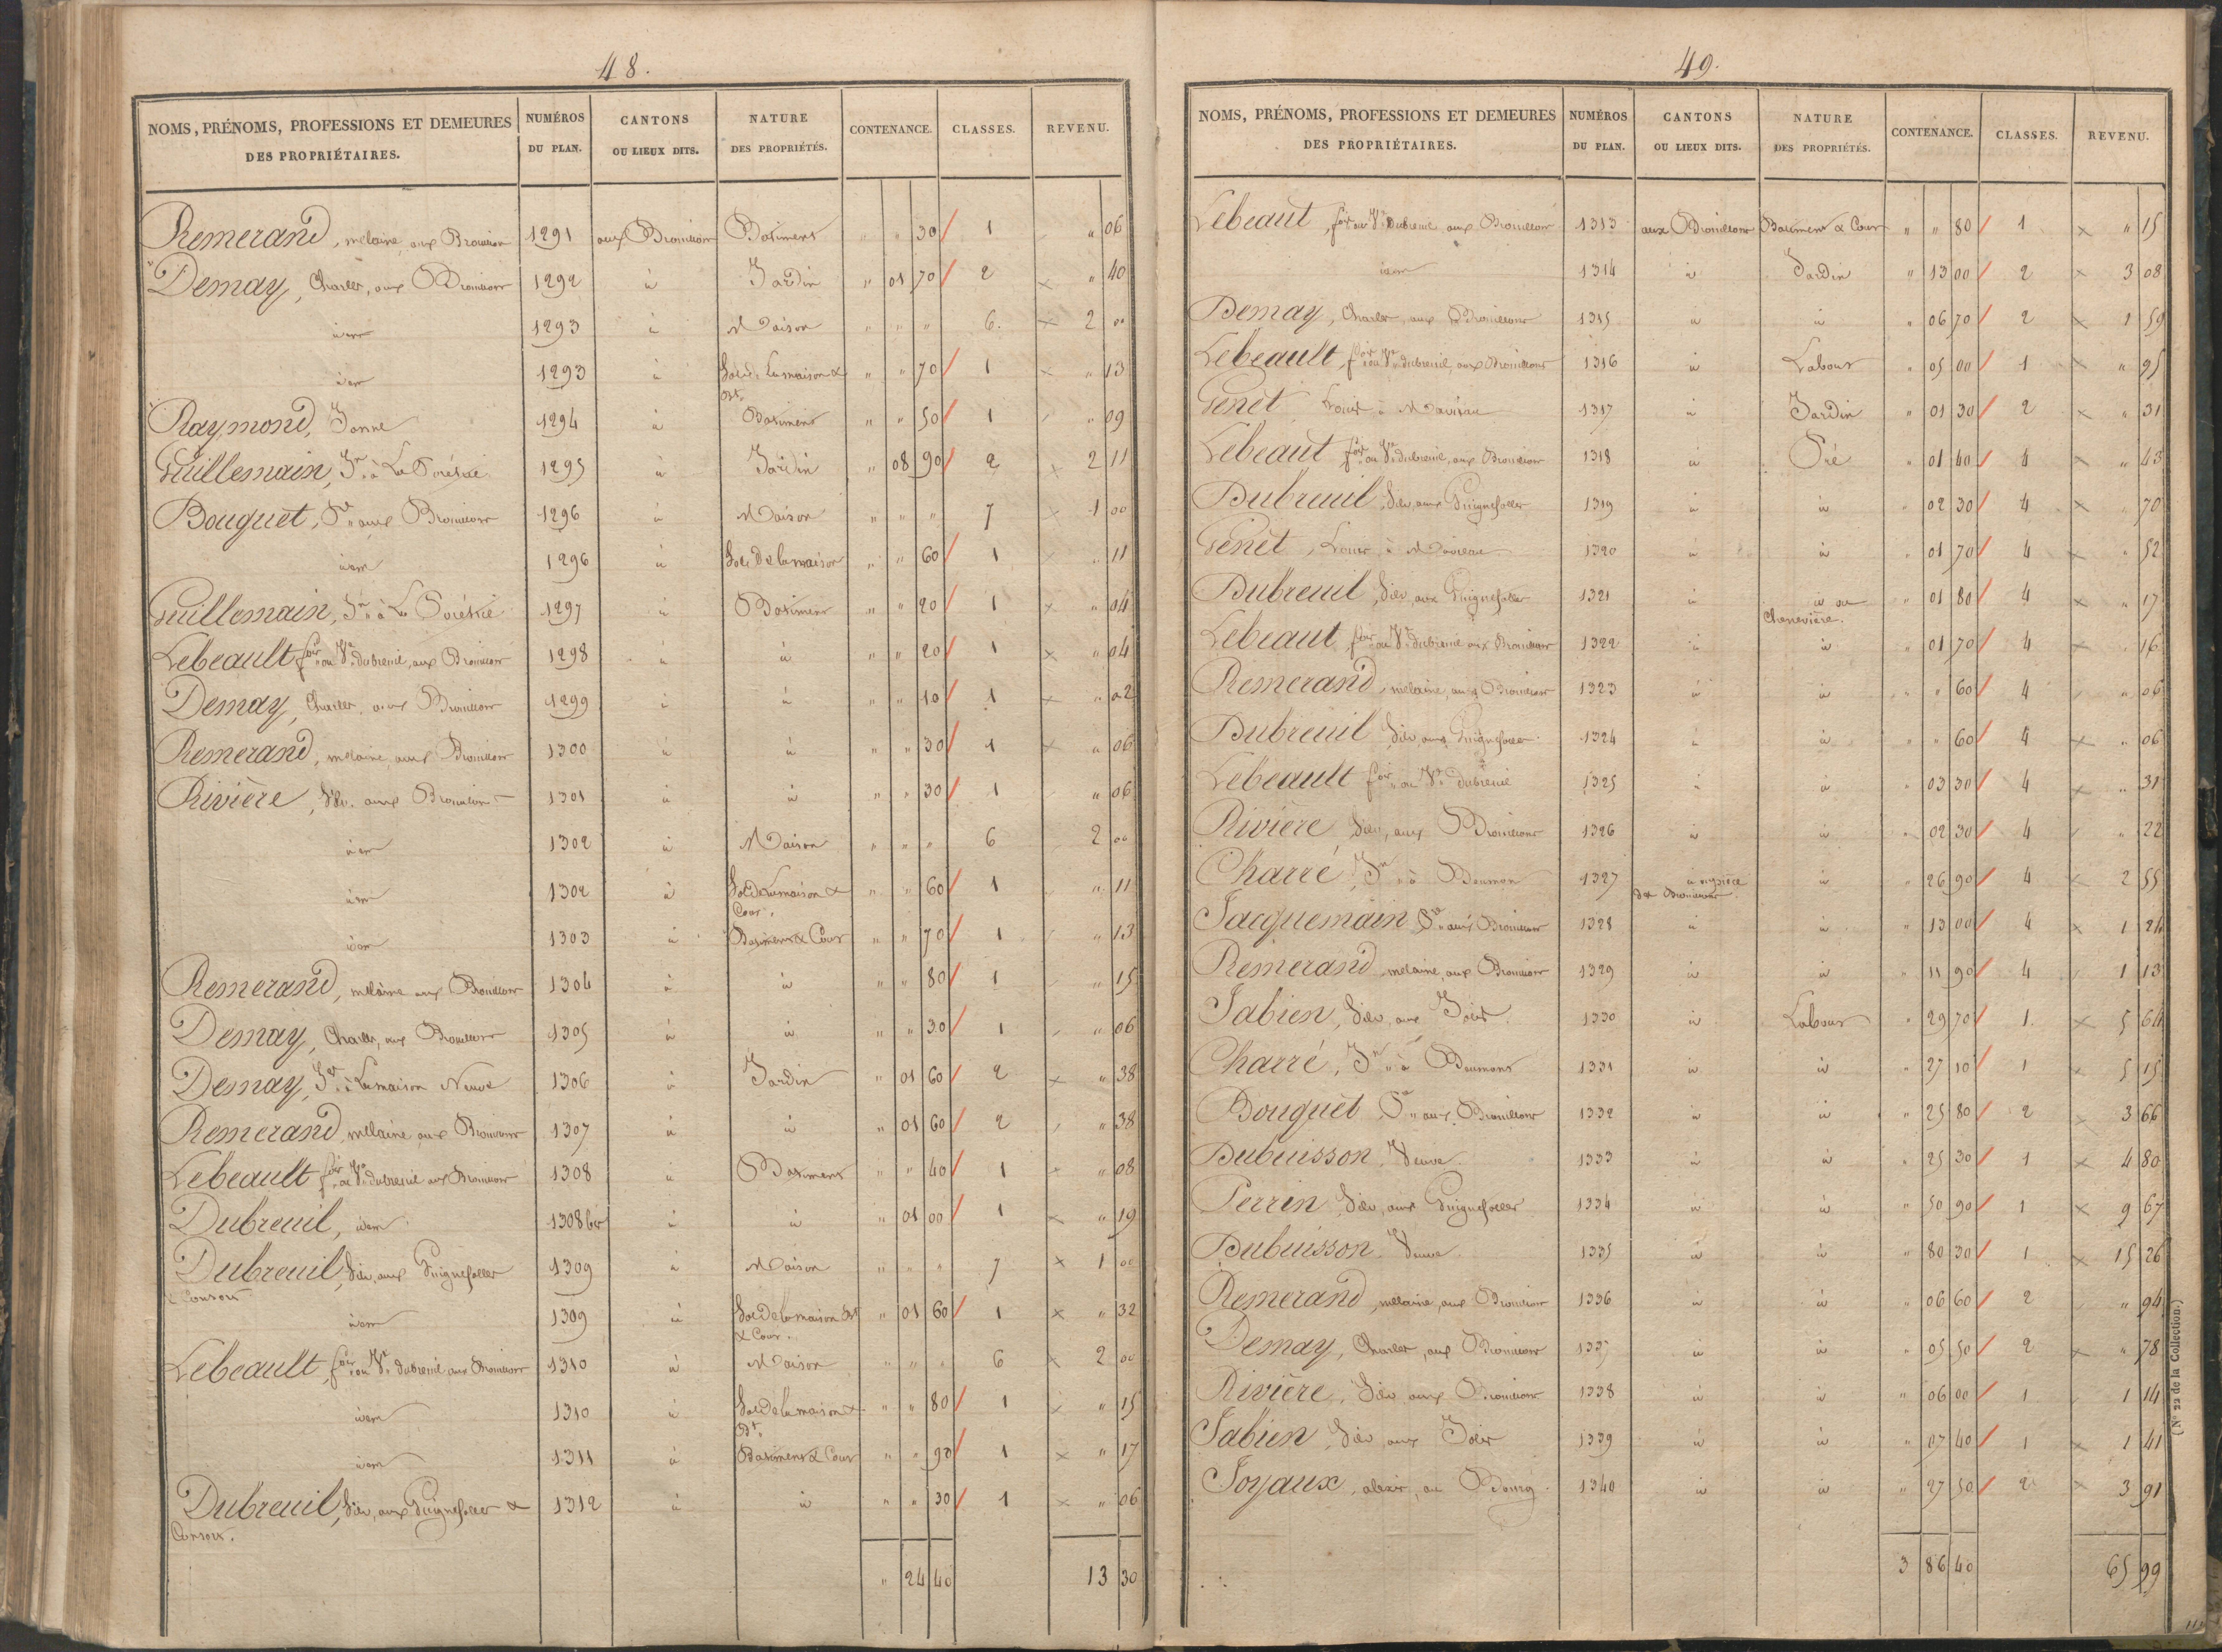 48.
NOMS, PRÉNOMS, PROFESSIONS ET DEMEURES DES PROPRIÉTAIRES. NUMÉROS DU PLAN. CANTONS OU LIEUX DITS. NATURE DES PROPRIÉTÉS. CONTENANCE. CLASSES. REVENU.
Remerand, melaine aux Brouillons 1291 aux Brouillons Batiment " " 30 1 " 06
Demay, Charles, aux Brouillons 1292 id Jardin " 01 70 2 " 40
idem 1293 id Maison " " " 6. 2 00
idem 1293 id Sol de La maison & Bt. " " 70 1 " 13
Raymond, 1294 id Batiment " " 50 1 " 09
Guillemain, Jn. à La 1295 id Jardin " 08 90 2 2 11
Bouquet, aux Brouillons 1296 id Maison " " " 7 1 00
idem 1296 id Sol de la maison " " 60 1 " 11
Guillemain, Jn. à La 1297 id Batiment " " 20 1 " 04
Lebeault foir ou Ve. dubreuil, aux Brouillons 1298 id id " " 20 1 " 04
Demay, Charles, aux Brouillons 1299 id id " " 10 1 " 02
Remerand, melaine, aux Brouillons 1300 id id " " 30 1 " 06
Rivière, Silv. aux Brouillons 1301 id id " " 30 1 " 06
idem 1302 id Maison " " " 6 2 00
idem 1302 id Sol de La maison & Cour. " " 60 1 " 11
idem 1303 id Batiment & Cour " " 70 1 " 13
Remerand, melaine aux Brouillons 1304 id id " " 80 1 " 15
Demay, Charles, aux Brouillons 1305 id id " " 30 1 " 06
Demay, à La maison Neuve 1306 id Jardin " 01 60 2 " 38
Remerand, melaine aux Brouillons 1307 id id " 01 60 2 " 38
Lebeault foir ou Ve. dubreuil aux Brouillons 1308 id Batiment " " 40 1 " 08
Dubreuil, idem 1308 bis id id " 01 00 1 " 19
Dubreuil, Silv, aux Guignefolles & Consors 1309 id Maison " " " 7 1 00
idem 1309 id Sol de la maison Bt & Cour. " 01 60 1 " 32
Lebeault, foir ou Ve. dubreuil aux Brouillons 1310 id Maison " " " 6 2 00
idem 1310 id Sol de La maison & Bt. " " 80 1 " 15
idem 1311 id Batiment & Cour " " 90 1 " 17
Dubreuil, Silv, aux Guignefolles & Consors. 1312 id id " " 30 1 " 06
" 24 40 13 30
49.
NOMS, PRÉNOMS, PROFESSIONS ET DEMEURES DES PROPRIÉTAIRES. NUMÉROS DU PLAN. CANTONS OU LIEUX DITS. NATURE DES PROPRIÉTÉS. CONTENANCE. CLASSES. REVENU.
Lebeaut, foir ou Ve. dubreuil aux Brouillons 1313 aux Brouillons Batiment & Cour " " 80 1 " 15
idem 1314 id Jardin " 13 00 2 3 08
Demay, Charles, aux Brouillons 1315 id id " 06 70 2 1 59
Lebeault, foir ou Ve. dubreuil, aux Brouillons 1316 id Labour " 05 00 1 " 95
Genet Louis à 1317 id Jardin " 01 30 2 " 31
Lebeaut foir ou Ve. dubreuil, aux Brouillons 1318 id Pré " 01 40 4 " 43
Dubreuil, Silv, aux Guignefolles 1319 id id " 02 30 4 " 70
Genet, Louis, à 1320 id id " 01 70 4 " 52
Dubreuil, Silv, aux Guignefolles 1321 id id ou Chenevière. " 01 80 4 " 17
Lebeaut foir ou Ve. dubreuil aux Brouillons 1322 id id " 01 70 4 " 16
Remerand, melaine, aux Brouillons 1323 id id " " 60 4 " 06
Dubreuil Silv, aux Guignefolles 1324 id id " " 60 4 " 06
Lebeault foir ou Ve. dubreuil 1325 id id " 03 30 4 " 31
Rivière Silv, aux Brouillons 1326 id id " 02 30 4 " 22
Charré, Jn. à 1327 Brouillons id " 26 90 4 2 55
Jacquemain aux Brouillons 1328 id id " 13 00 4 1 24
Remerand melaine, aux Brouillons 1329 id id " 11 90 4 1 13
Silv, aux 1330 id Labour " 29 70 1. 5 64
Charré, Jn. à 1331 id id " 27 10 1 5 15
Bouquet aux Brouillons 1332 id id " 25 80 2 3 66
Dubuisson, Veuve 1333 id id " 25 30 1 4 80
Perrin Silv, aux Guignefolles 1334 id id " 50 90 1 9 67
Dubuisson Veuve 1335 id id " 80 30 1 15 26
Remerand, melaine, aux Brouillons 1336 id id " 06 60 2 " 94
Demay, Charles, aux Brouillons 1337 id id " 05 50 2 " 78
Rivière, Silv aux Brouillons 1338 id id " 06 00 1 1 14
Silv aux 1339 id id " 07 40 1 1 41
Joyaux, alexis, au Bourg. 1340 id id " 27 50 2 3 91
3 86 40 65 99
(N° 22 de la Collection.)